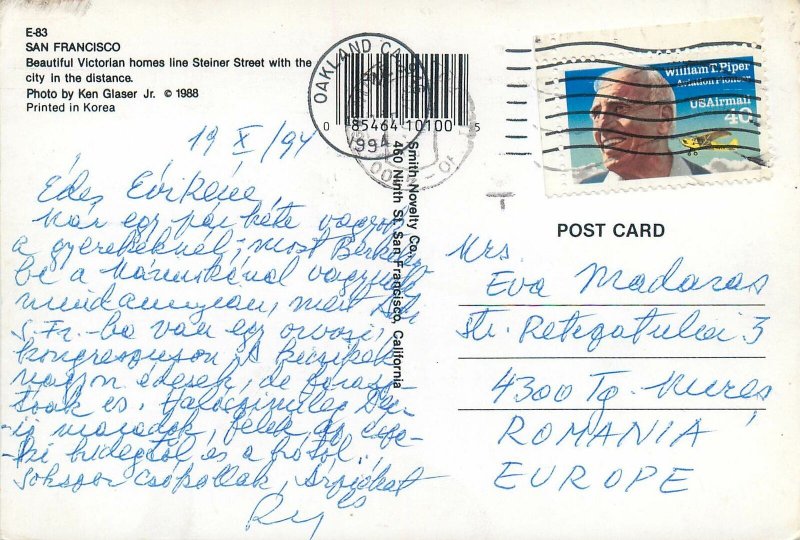 E-83
SAN FRANCISCO
Beautiful Victorian homes line Steiner Street with the
city in the distance.
Photo by Ken Glaser Jr. © 1988
Printed in Korea
OAKLAND CA
1994
0 85464 10100 5
Smith Novelty Co.,
460 Ninth St. San Francisco, California
William T. Piper
Aviation Pioneer
USAirmail
40
POST CARD
19 X/94
Édes Évikéne,
Már egy pár hete vagyok
a gyerekeknél, most Berkeley
be a vagyunk
mindannyian, mert
S. Fr.-ba van egy orvosi,
kongresszuson. A
nagyon édesek, de
toak is.
ig maradok, félek az
ki hidegtől és a hótól.
Sokszor csókollak, Árpidot
és
Mrs.
Eva Madaras
str. Retezatului 3
4300 Tg. Mureș
ROMANIA
EUROPE